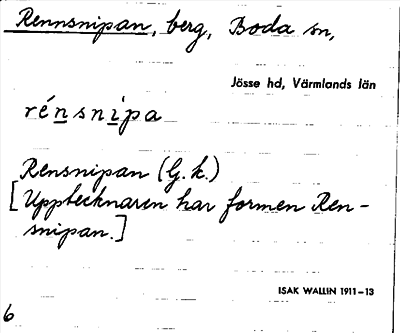 Rennsnipan, berg, Boda sn,
Jösse hd, Värmlands län
rénsnìpa
Rensnipan (G.k.)
[Upptecknaren har formen Ren-
snipan.]
ISAK WALLIN 1911–13
6